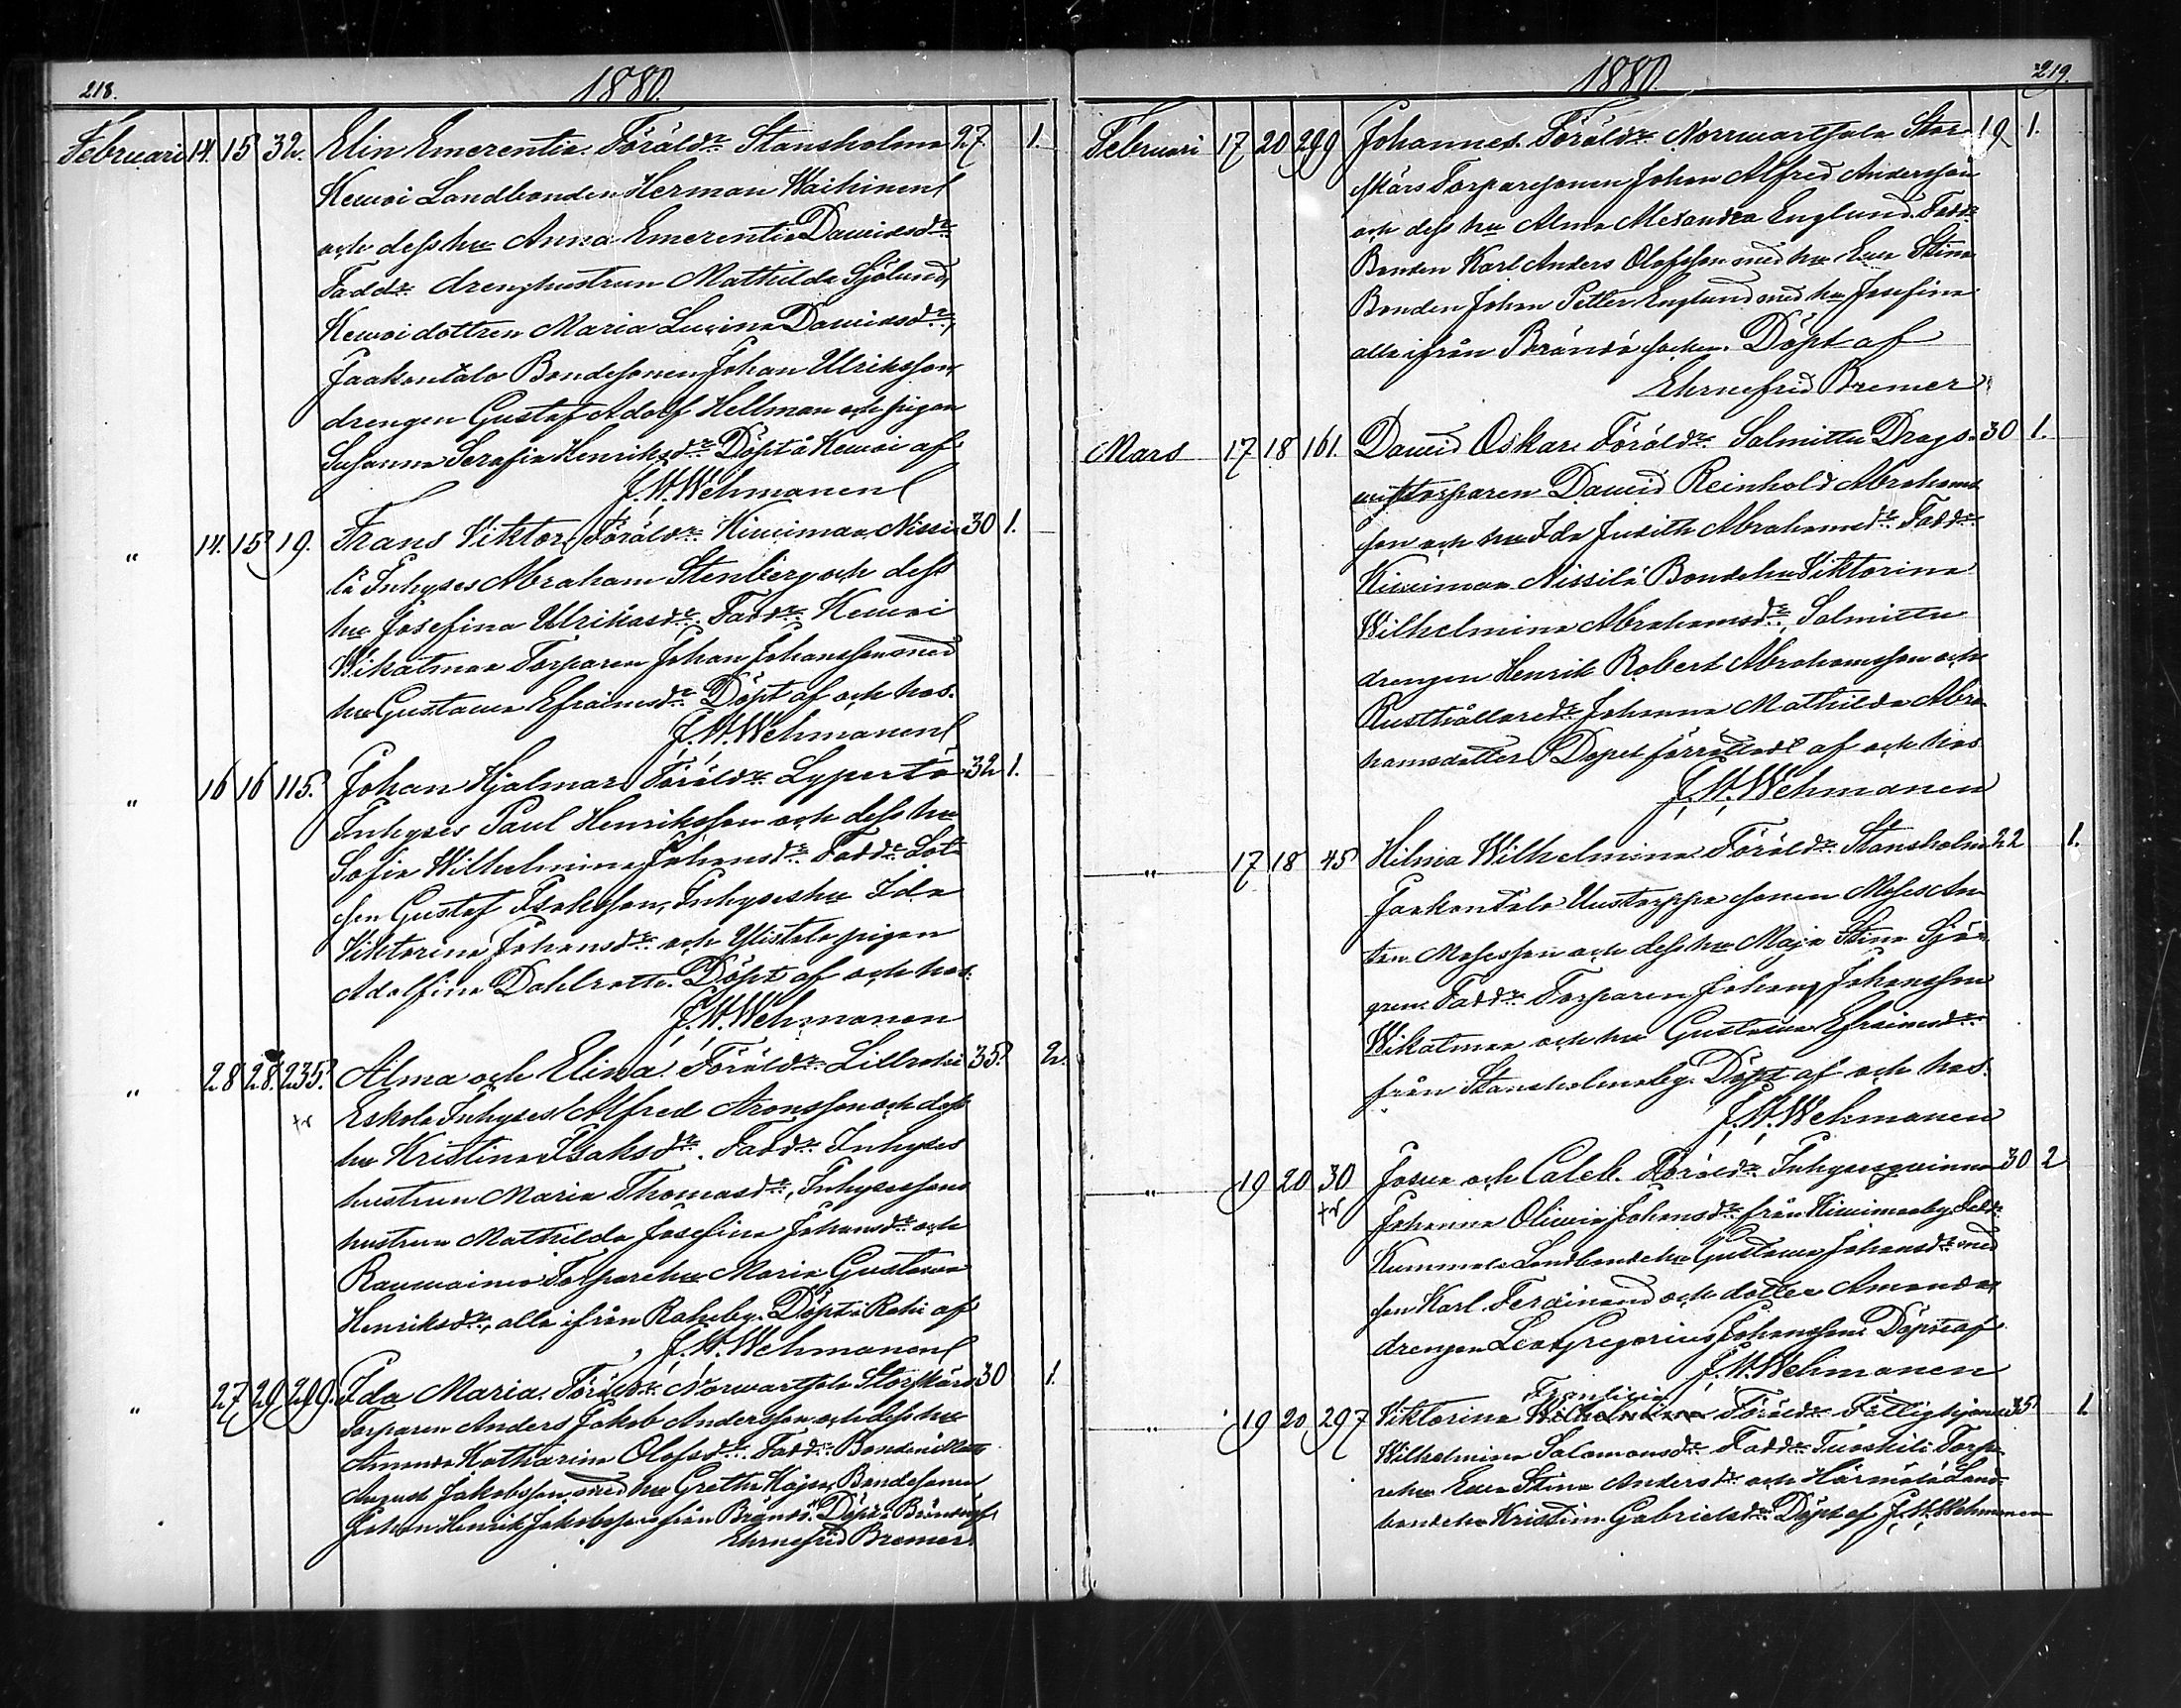 218.
1880.
Februari 14. 15 32. Elin Emerentia. Föräldr Stansholma 27. 1.
Kewoi Landbonden Herman Waihinen
och dess hu Anna Emerentia Dawidsdr
Faddr drenghustrun Mathilda Sjölund,
Kewoi dottren Maria Lusina Dawidsdr,
Jaakontalo Bondesonen Johan Ulriksson,
drengen Gustaf Adolf Hellman och pigan
Susanna Serafia Henriksdr Döpt å Kewoi af
J. W. Wehmanen
" 14. 15 19. Frans Viktor, Föräldr Kiwimaa Nissi- 30 1.
lä Inhyses Abraham Stenberg och dess
hu Josefina Ulriksdr. Faddr Kewoi
Wikatmaa Torparen Johan Johansson med
hu Gustawa Efraimsdr Döpt af och hos.
J. W. Wehmanen
" 16 16 115. Johan Hjalmar. Föräldr Lypertö 32 1.
Inhyses Paul Henriksson och dess hu
Sofia Wilhelmina Johansdr Faddr Lot-
sen Gustaf Isaksson, Inhyseshu Ida
Viktorina Johansdr och Ylistalo pigan
Adolfina Dahlroth. Döpt af och hos.
J. W. Wehmanen
" 28 28. 235. Alma och Elina. Föräldr Lillrahi 35. 2.
Eskola Inhyses Alfred Aronsson och dess
hu Kristina Isaksdr. Faddr Inhyses
hustrun Maria Thomasdr, Inhysessons
hustrun Mathilda Josefina Johansdr och
Torparehu Maria Gustawa
Henriksdr, alla ifrån Rahi by. Döpt i Rahi af
J. W. Wehmanen
" 27 29 299. Ida Maria. Föräldr Norrwartsala Storskärs 30 1.
Torparen Anders Jakob Andersson och dess hu
Amanda Katharina Olofsdr Faddr Bonden
August Jakobsson med hu Greta Kajsa, Bondesonen
Johan Henrik Jakobsson från Brändö. Döpt i Brändö af
Ehrnefrid Bremer
219.
1880.
Februari 17 20 299 Johannes. Föräldr Norrwartsala Stor- 19 1.
skärs Torparesonen Johan Alfred Andersson
och dess hu Alma Alexandra Englund. Faddr
Bonden Karl Anders Olofsson med hu Ewa Stina
Bonden Johan Petter Englund med hu Josefina
alla ifrån Brändö socken. Döpt af
Ehrnefrid Bremer
Mars 17 18 161. Dawid Oskar. Föräldr Salmittu Drags- 30 1.
torparen Dawid Reinhold Abrahams-
son och hu Ida Judith Abrahamsdr. Faddr
Kiwimaa Nissilä Bondehu Viktorina
Wilhelmina Abrahamsdr, Salmittu
drengen Henrik Robert Abrahamsson och
Rusthållaredr Johanna Mathilda Abra-
hamsdotter. Dopet förrättadt af och hos
J. W. Wehmanen
" 17 18 45 Hilma Wilhelmina. Föräldr Stansholma 22 1.
Jaakontalo sonen Moses An-
ton Mosesson och dess hu Maja Stina Sjö-
gren. Faddr Torparen Johan Johansson
Wikatmaa och hu Gustawa Efraimsdr
från Stansholma by. Döpt af och hos.
J. W. Wehmanen
" 19 20 30 Josua och Caleb. Föräldr Inhysesqvinnan 30 2
Johanna Oliwia Johansdr från Kiwimaa by. Faddr
Kummala Landbondehu Gustawa Johansdr med
son Karl Ferdinand och dotter Amanda,
drengen Leo Gregorius Johansson. Döpt af
J. W. Wehmanen
" 19 20 297 Viktorina Wilhelmina Föräldr Fattighjonet 35 1.
Wilhelmina Salomonsdr Faddr Tuoskili Torpa-
rehu Ewa Stina Andersdr och Härmälä Land-
bondehu Kristina Gabrielsdr Döpt af J. W. Wehmanen